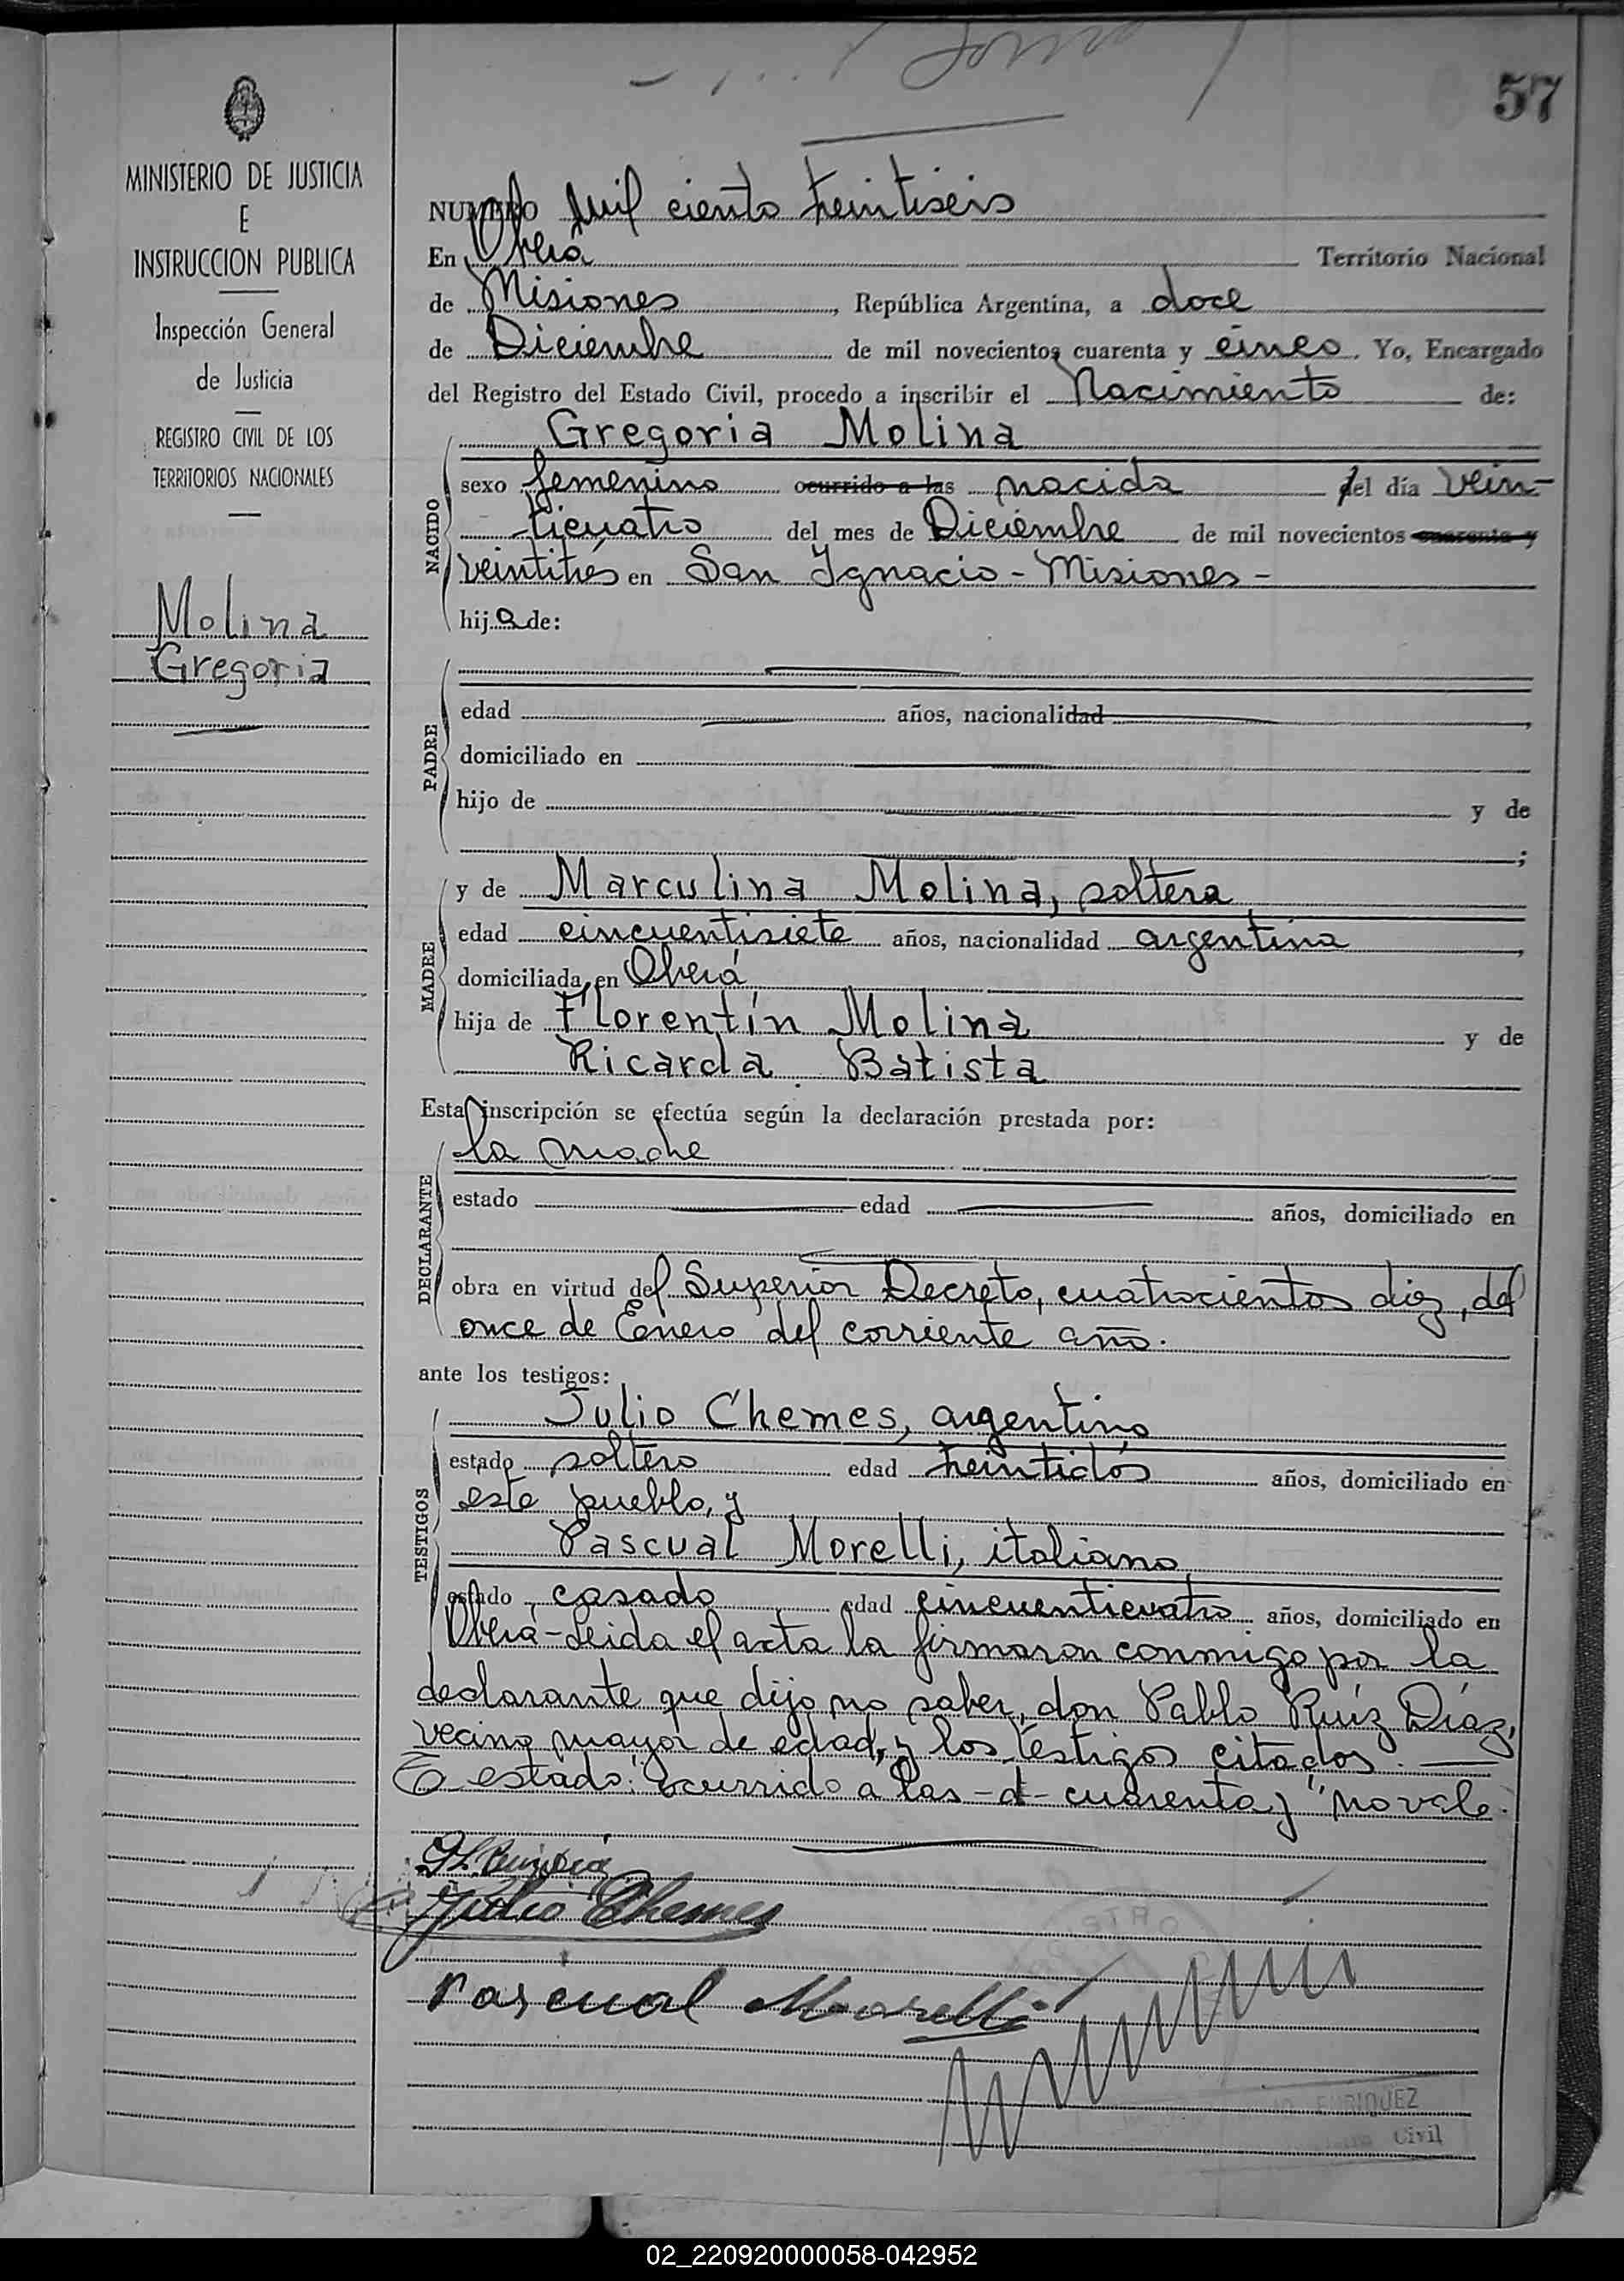 57
MINISTERIO DE JUSTICIA
E
INSTRUCCION PUBLICA
Inspección General
de Justicia
REGISTRO CIVIL DE LOS
TERRITORIOS NACIONALES
Molina
Gregoria
NUMERO Mil ciento treintiseis
En Oberá Territorio Nacional
de Misiones, República Argentina, a doce
de Diciembre de mil novecientos cuarenta y cinco. Yo, Encargado
del Registro del Estado Civil, procedo a inscribir el Nacimiento de:
Gregoria Molina
NACIDO
sexo femenino ocurrido a las nacida del día vein-
ticuatro del mes de Diciembre de mil novecientos cuarenta y
veintitrés en San Ignacio - Misiones -
hija de:
PADRE
edad años, nacionalidad
domiciliado en
hijo de y de
;
MADRE
y de Marculina Molina, soltera
edad cincuentisiete años, nacionalidad argentina
domiciliada en Oberá
hija de Florentín Molina y de
Ricarda Batista
Esta inscripción se efectúa según la declaración prestada por:
DECLARANTE
la madre
estado edad años, domiciliado en
obra en virtud del Superior Decreto, cuatrocientos diez, del
once de Enero del corriente año.
ante los testigos:
TESTIGOS
Julio Chemes, argentino
estado soltero edad treintidós años, domiciliado en
este pueblo, y
Pascual Morelli, italiano
estado casado edad cincuenticuatro años, domiciliado en
Oberá - Leida el acta la firmaron conmigo por la
declarante que dijo no saber, don Pablo Ruíz Díaz,
vecino mayor de edad, y los testigos citados.
estado: "ocurrido a las - d - cuarenta y" no vale.
Julio Chemes
Pascual Morelli
ENRIQUEZ
Civil
02_220920000058-042952